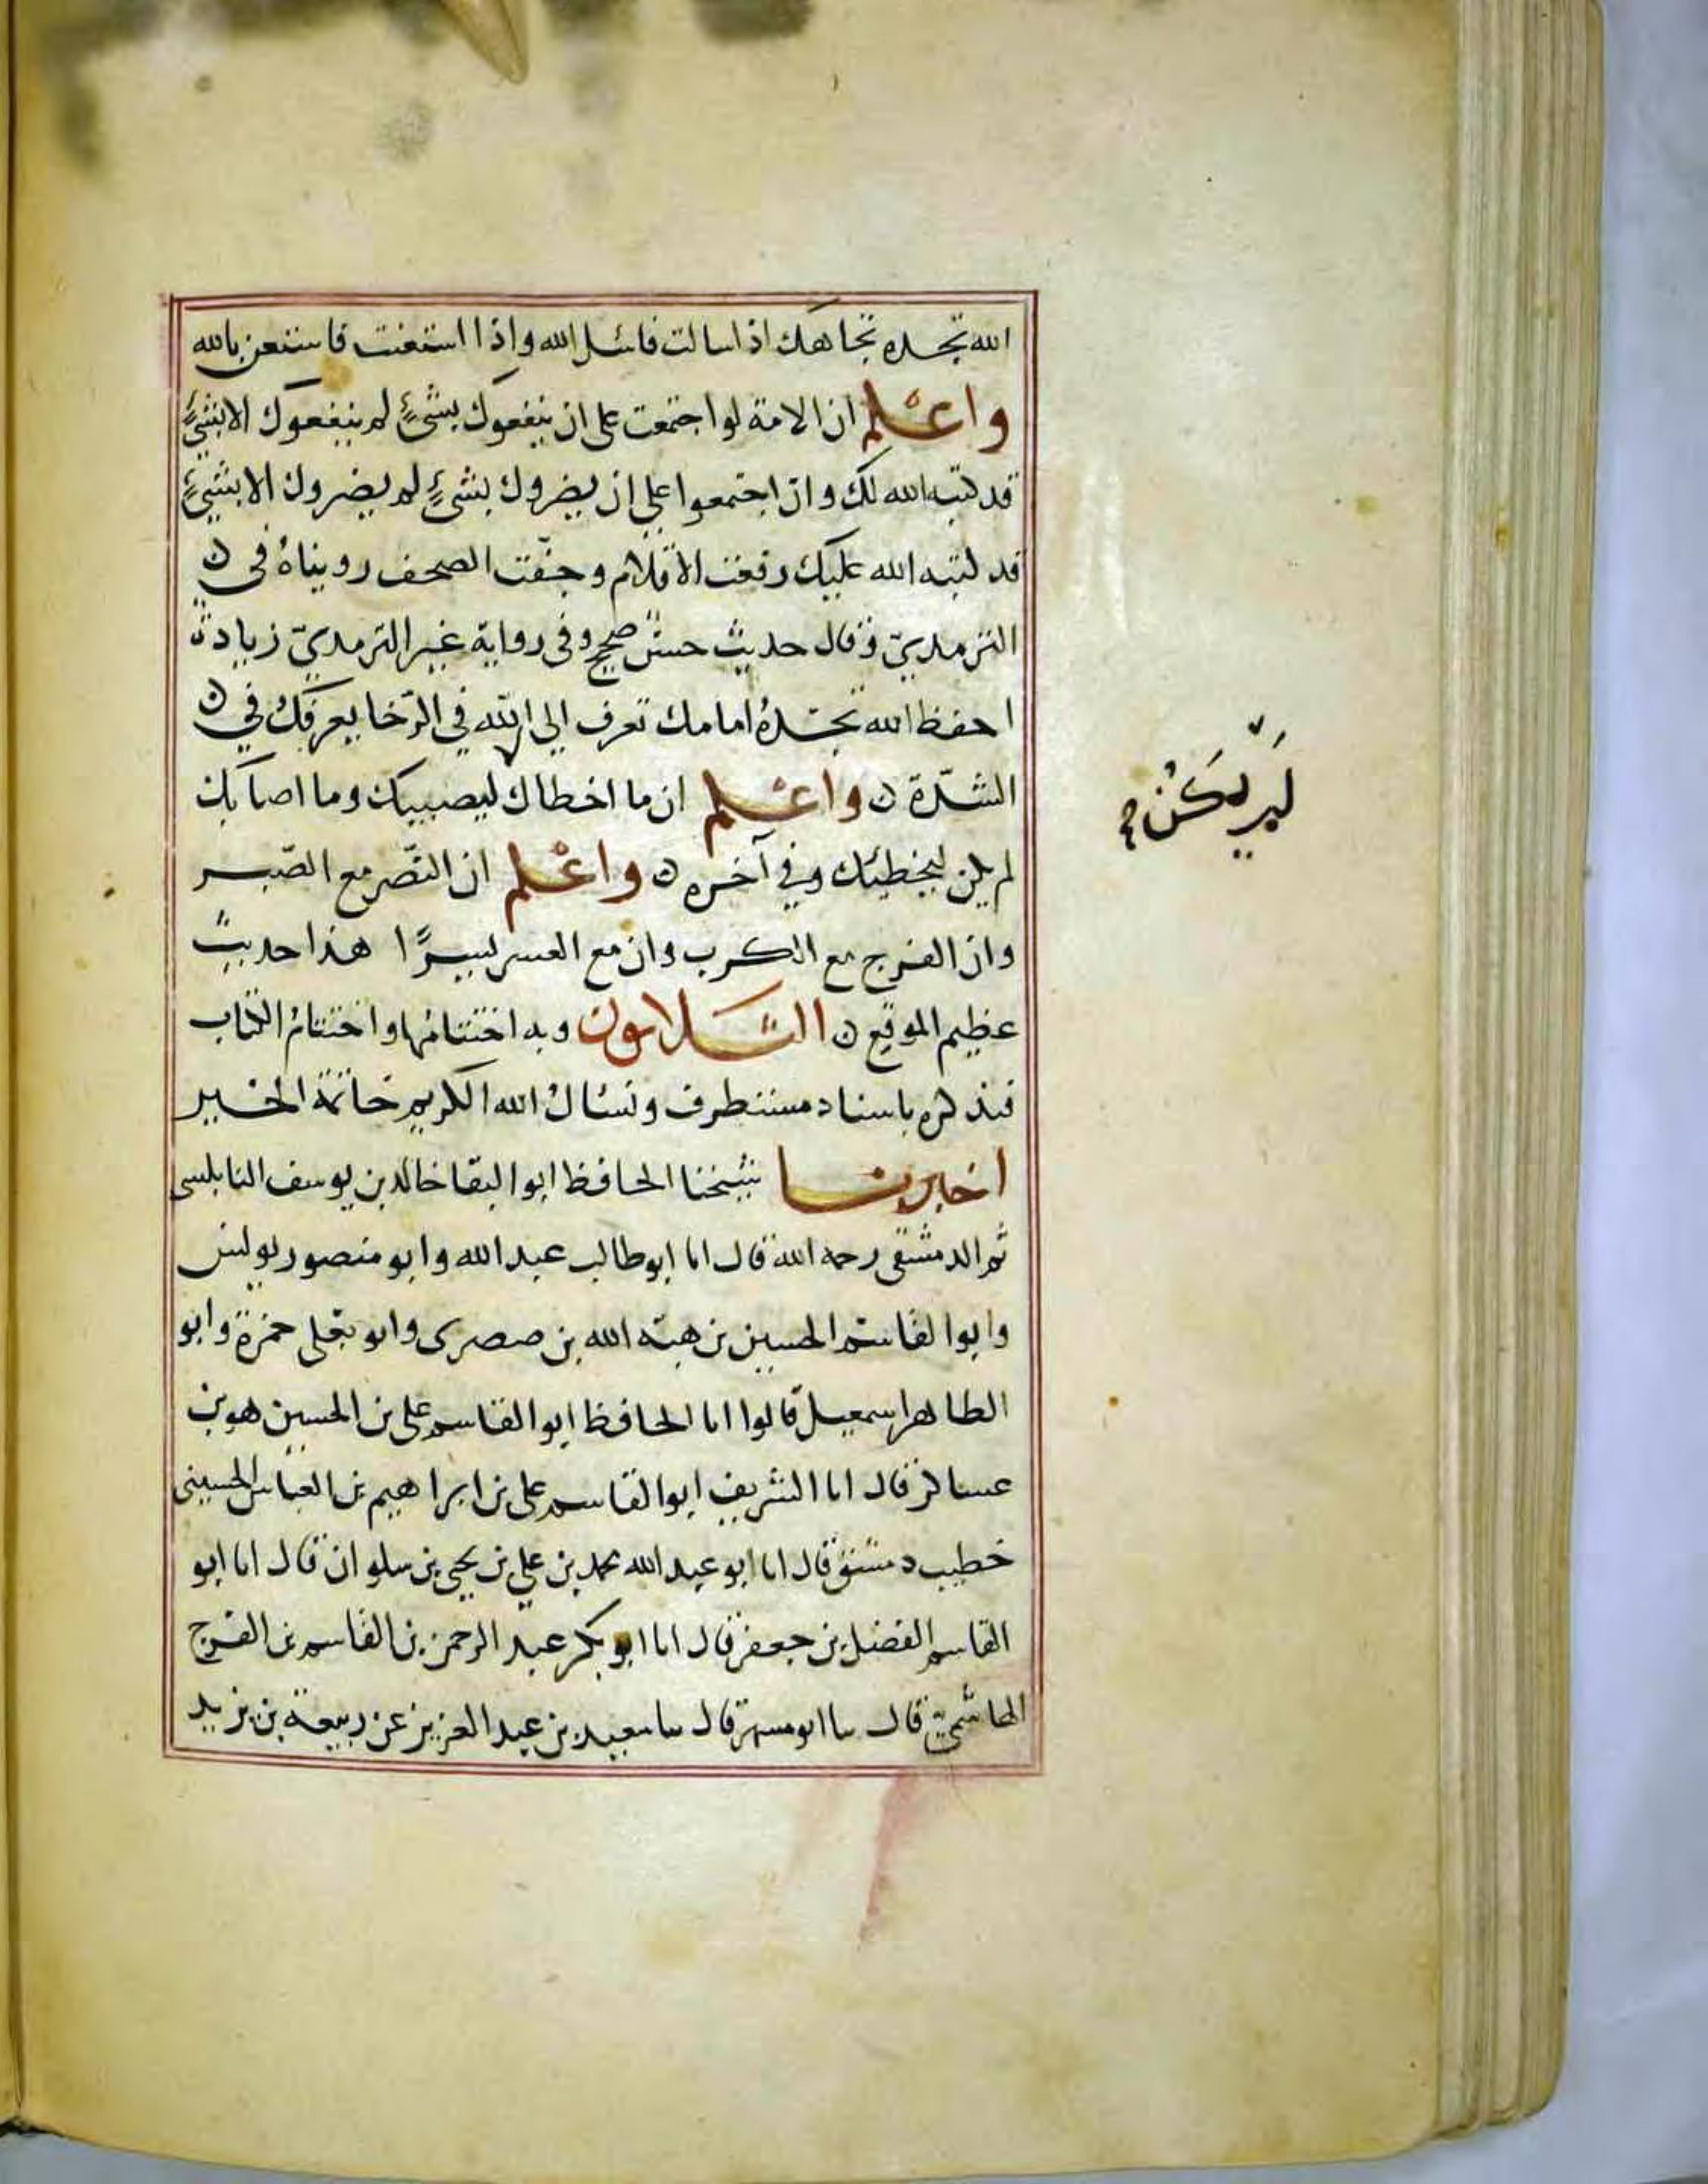 الله تجده تجاهك اذا سالت فاسئل الله واذا استعنت فاستعن بالله
واعلم ان الامة لو اجتمعت على ان ينفعوك بشئٍ لم ينفعوك الا بشئٍ
قد كتبه الله لك وان اجتمعوا على ان يضروك بشئٍ لم يضروك الا بشئٍ
قد كتبه الله عليك رفعت الاقلام وجفّت الصحف رويناهُ في
الترمديّ وقال حديث حسن صحيح وفي رواية غير الترمديّ زيادة
احفظ الله تجدهُ امامك تعرف الي الله في الرّخا يعرفك في
الشدّة واعلم ان ما اخطاك ليصيبك وما اصابك
لم يكن ليخطيك وفي آخره واعلم ان النّصر مع الصّبر
وان الفرج مع الكرب وان مع العسر يسرًا هذا حديثٌ
عظيم الموقع الثلاثون وبه اختتامها واختتام الكتاب
فنذكره باسناد مستطرف ونسئال الله الكريم خاتمة الخير
اخبرنا شيخنا الحافظ ابو البقا خالد بن يوسف النابلسى
ثم الدمشقى رحمه الله قال انا ابو طالب عبد الله وابو منصور يونس
وابوا القاسم الحسين بن هبة الله بن صصرى وابو يعلى حمزة وابو
الطاهر اسمعيل قالوا انا الحافظ ابو القاسم على بن الحسين هو بن
عساكر قال انا الشريف ابوا القاسم على بن ابراهيم بن العباس الحسينى
خطيب دمشق قال انا ابو عبد الله محمد بن علي بن يحيى بن سلوان قال انا ابو
القاسم الفضل بن جعفر قال انا ابو بكر عبد الرحمن بن القاسم بن الفرج
الهاشميّ قال سا ابو مسهر قال سا سعيد بن عبد العزيز عن ربيعة بن يزيد
لم يكن